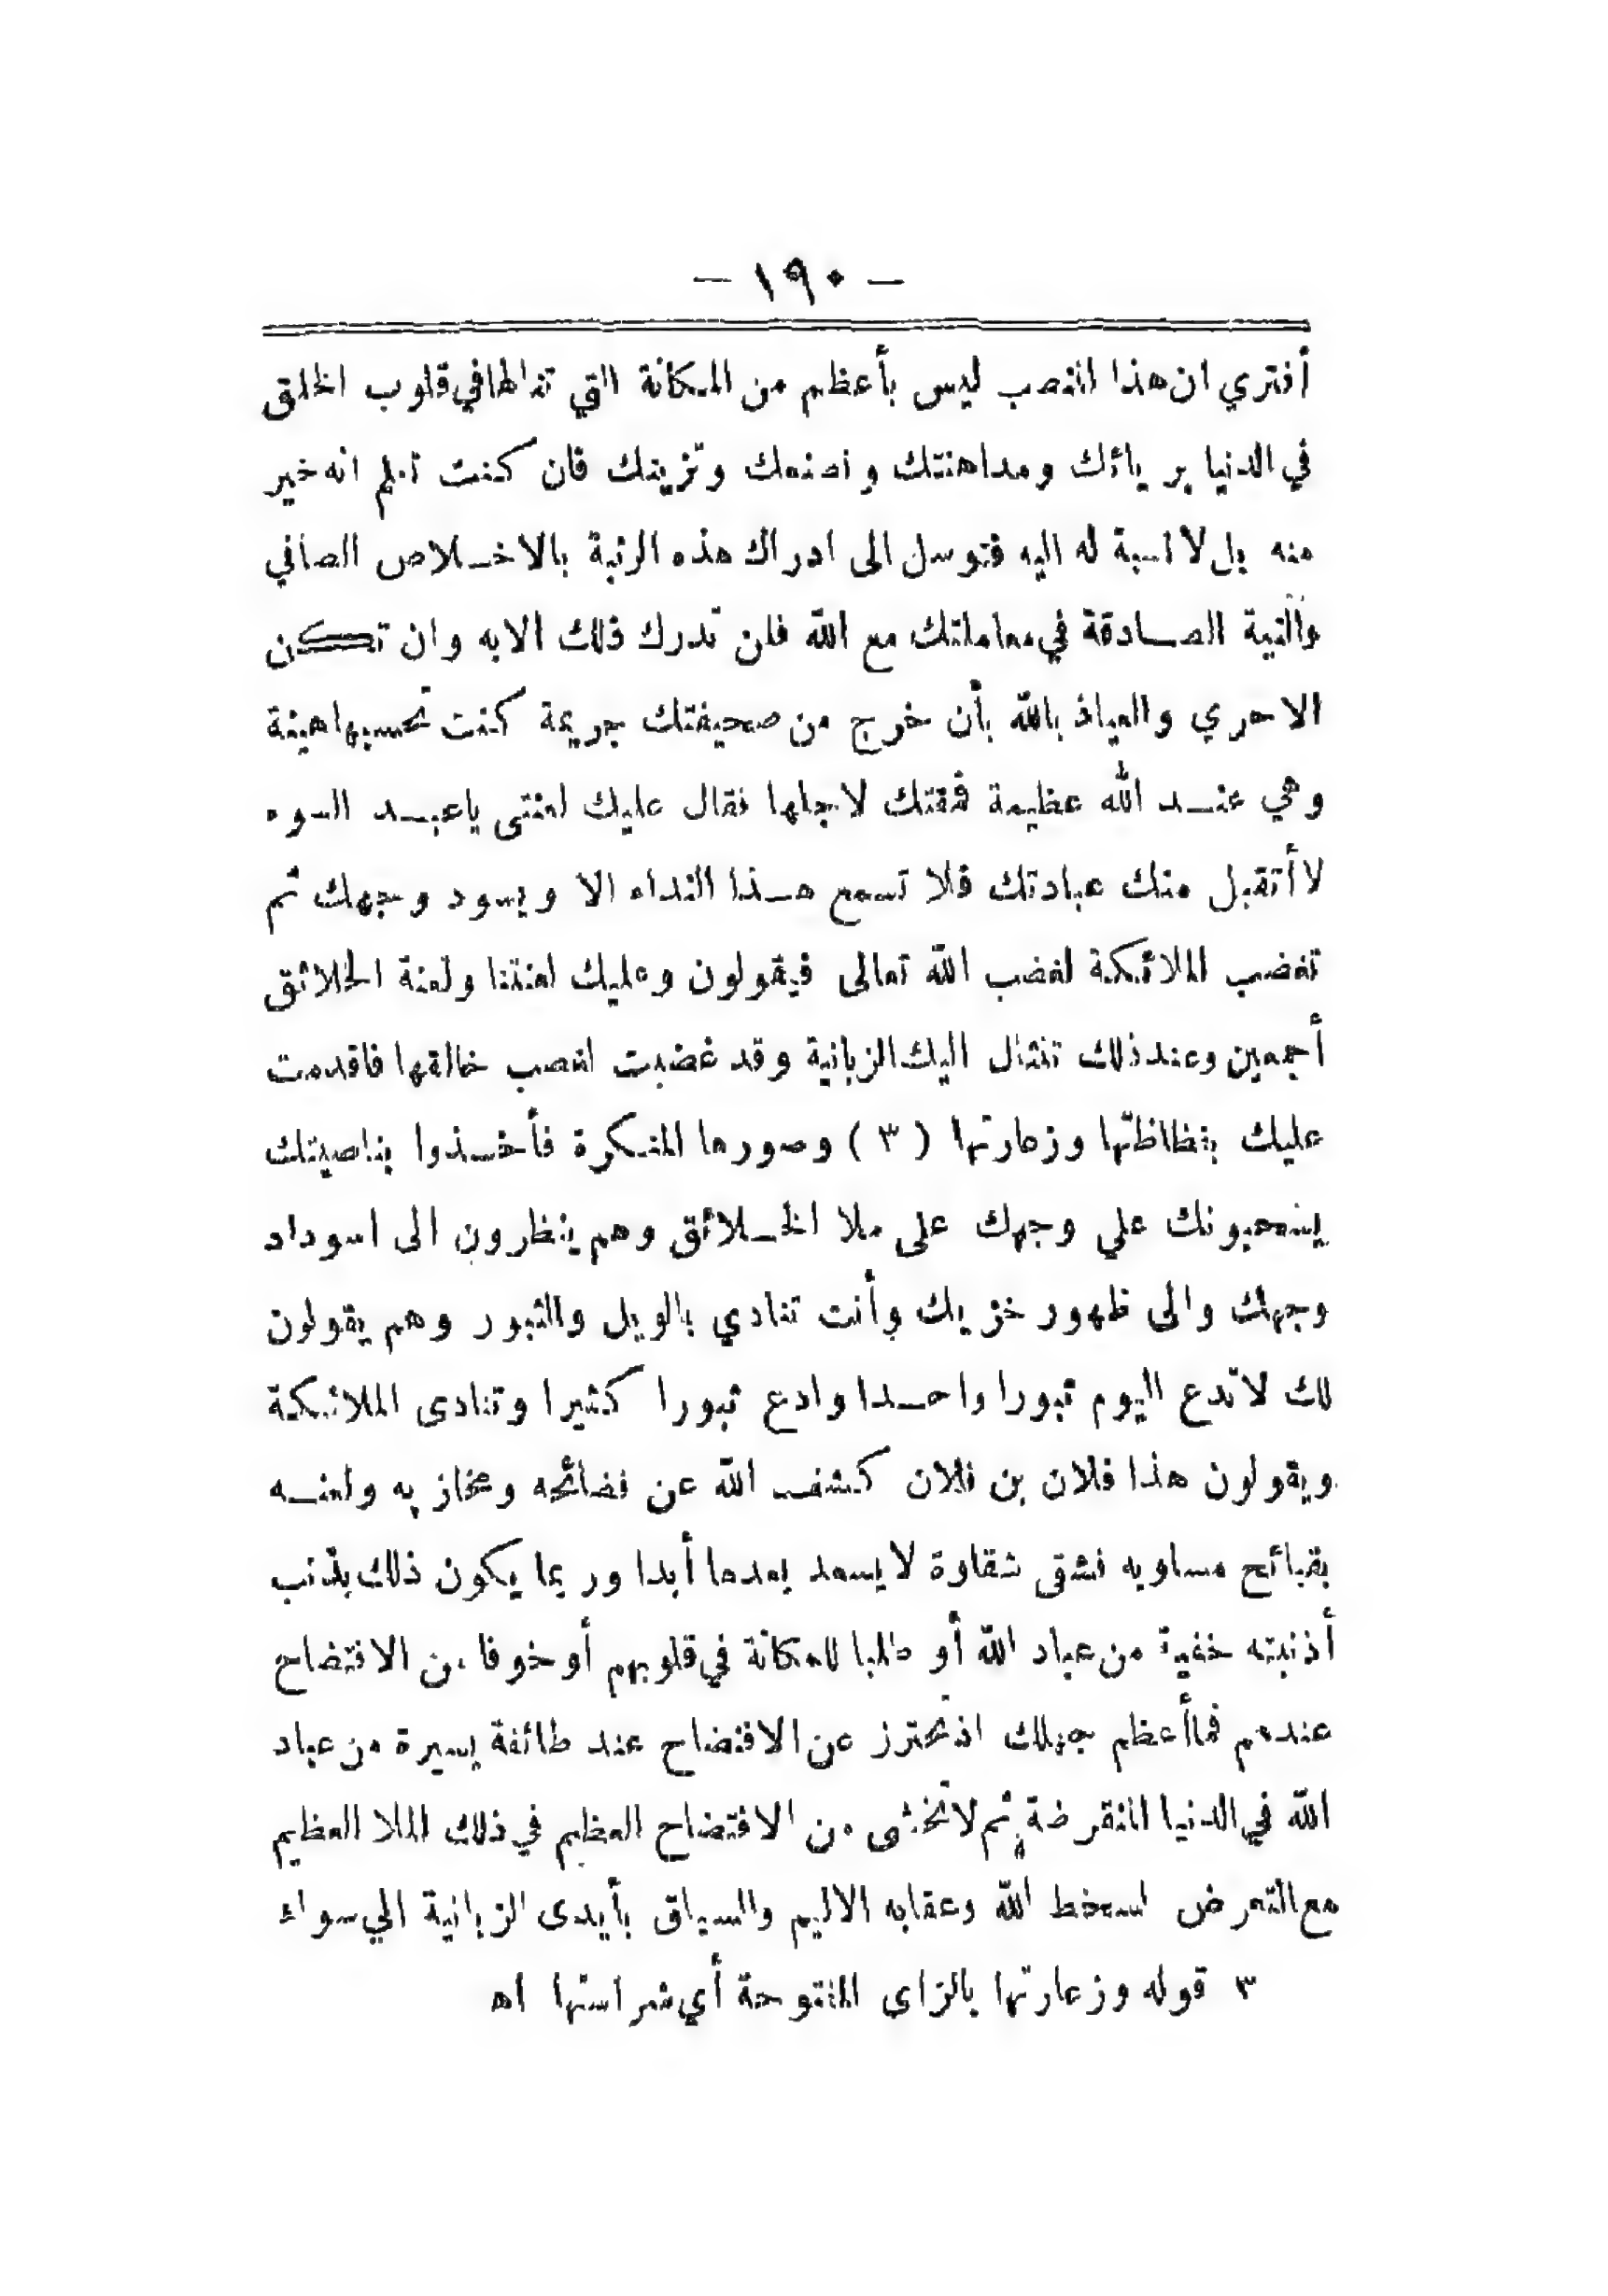 — ١٩٠ —
أفتري ان هذا المنصب ليس بأعظم من المكانة التي تنالها في قلوب الخلق
في الدنيا بريائك ومداهنتك وتصنعك وتزينك فان كنت تعلم انه خير
منه بل لا نسبة له اليه فتوسل الى ادراك هذه الرتبة بالاخلاص الصافي
والنية الصادقة في معاملتك مع الله فلن تدرك ذلك الا به وان تكن
الاخري والعياذ بالله بأن خرج من صحيفتك جريمة كنت تحسبها هينة
وهي عند الله عظيمة فمقتك لاجلها فقال عليك لعنتي يا عبد السوء
لا أتقبل منك عبادتك فلا تسمع هذا النداء الا ويسود وجهك ثم
تغضب الملائكة لغضب الله تعالى فيقولون وعليك لعنتنا ولعنة الخلائق
أجمعين وعند ذلك تنثال اليك الزبانية وقد غضبت لغضب خالقها فاقدمت
عليك بفظاظتها وزعارتها ( ٣ ) وصورها المنكرة فأخذوا بناصيتك
يسحبونك علي وجهك على ملا الخلائق وهم ينظرون الى اسوداد
وجهك والى ظهور خزيك وأنت تنادي بالويل والثبور وهم يقولون
لك لا تدع اليوم ثبورا واحدا وادع ثبورا كثيرا وتنادى الملائكة
ويقولون هذا فلان بن فلان كشف الله عن فضائحه ومخازيه ولعنه
بقبائح مساويه فشقى شقاوة لا يسعد بعدها أبدا وربما يكون ذلك بذنب
أذنبته خفية من عباد الله أو طلبا للمكانة في قلوبهم أو خوفا من الافتضاح
عندهم فما أعظم جهلك اذ تحترز عن الافتضاح عند طائفة يسيرة من عباد
الله في الدنيا المنقرضة ثم لا تخشى من الافتضاح العظيم في ذلك الملا العظيم
مع التعرض لسخط الله وعقابه الاليم والسياق بأيدى الزبانية الي سواء
٣ قوله وزعارتها بالزاى المفتوحة أي شراستها اه